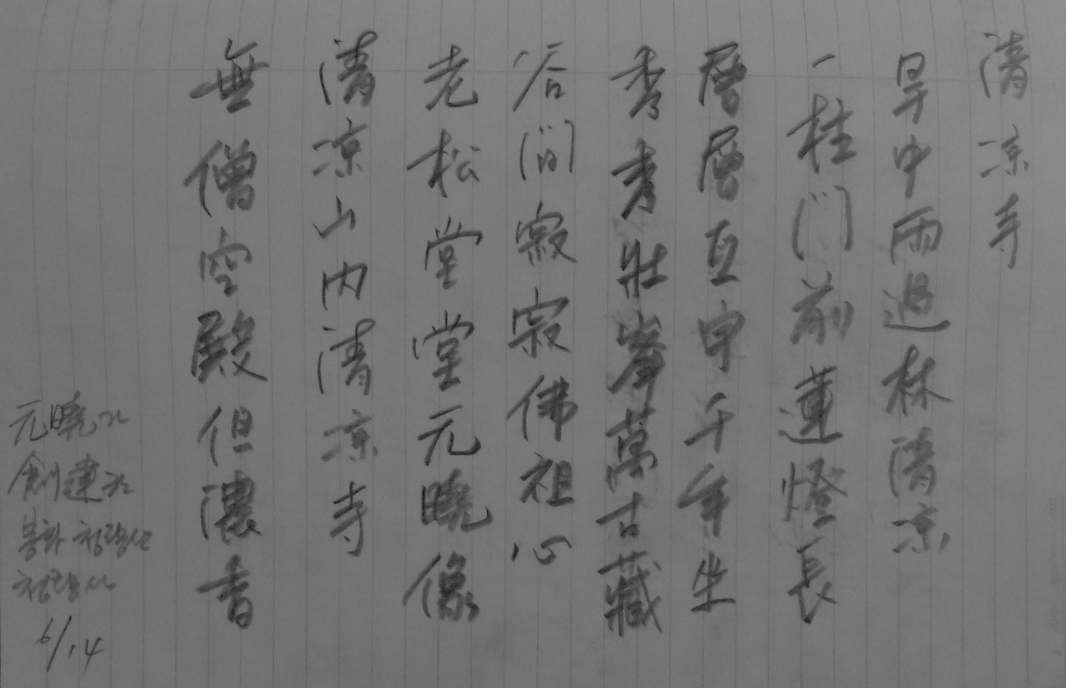 清凉寺
旱中雨過林清凉
一柱門前蓮燈長
層層亘宇千年坐
秀秀壯峯萬古藏
谷间寂寂佛祖心
老松堂堂元曉像
清凉山内清凉寺
無僧空殿但濃香
元曉가
創建한
봉화 청량산
청량사
6/14